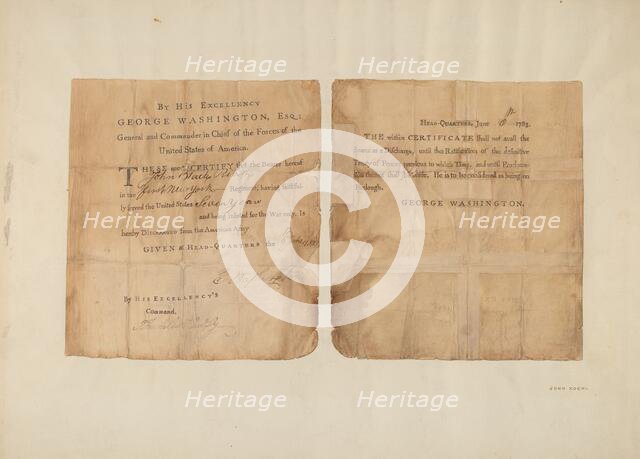 By His Excellency
GEORGE WASHINGTON, Esq;
General and Commander in Chief of the Forces of the
United States of America.
THESE are to CERTIFY that the Bearer hereof
John
in the First New York Regiment, having faithful-
ly served the United States Seven Years
and being inlisted for the War only, is
hereby Discharged from the American Army.
GIVEN at Head-Quarters the
By His Excellency's
Command,
Head-Quarters, June 1783.
THE within CERTIFICATE shall not avail the
Bearer as a Discharge, until the Ratification of the definitive
Treaty of Peace; previous to which Time, and until Proclama-
tion thereof shall be made, He is to be considered as being on
Furlough.
GEORGE WASHINGTON.
JOHN KOEHL
Heritage Heritage
Heritage Heritage
Heritage Heritage
Heritage Heritage
C